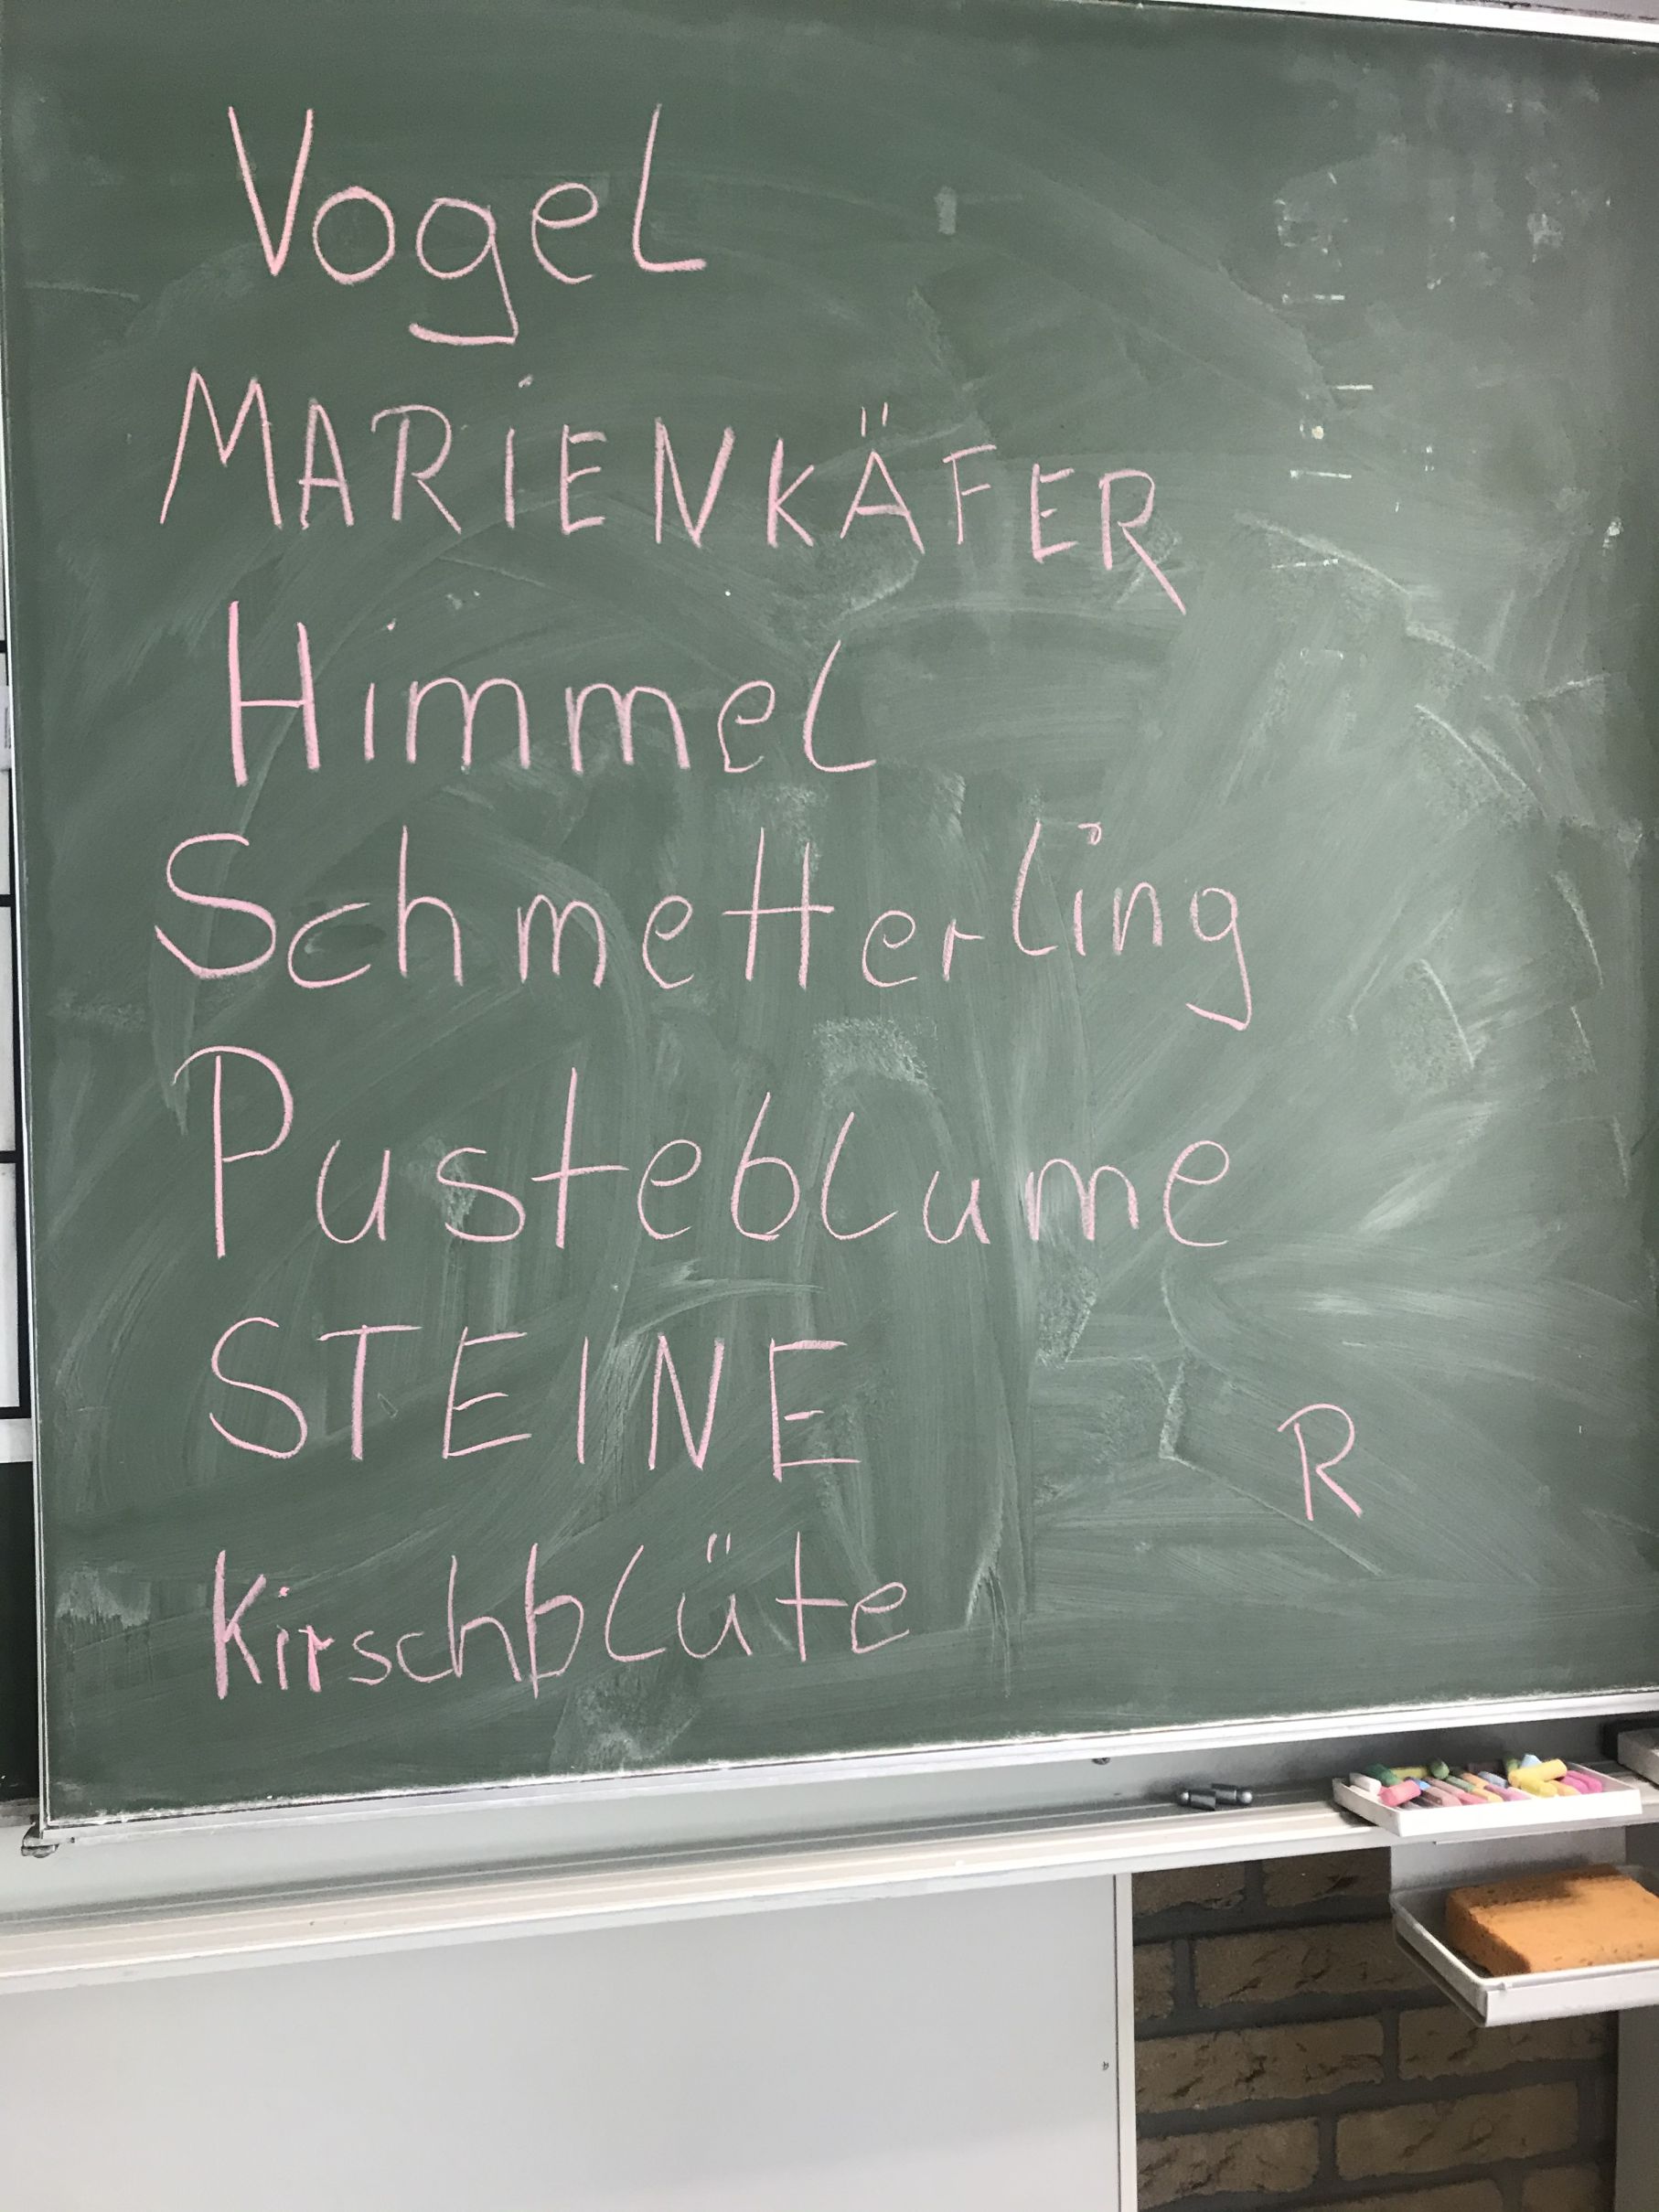 Vogel
MARiENKÄFER
Himmel
Schmetterling
Pusteblume
STEINE
R
Kirschblüte